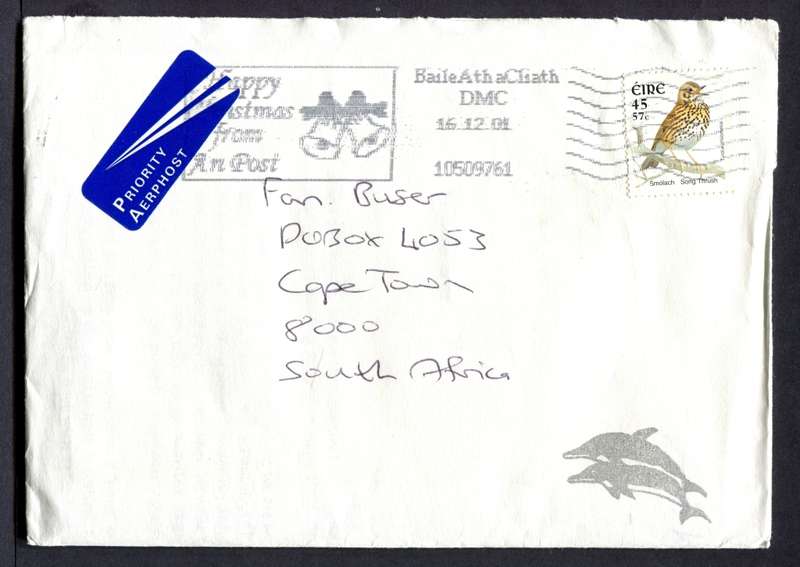 PRIORITY
AERPHOST
Happy
Christmas
from
An Post
BaileAthaCliath
DMC
16.12.01
10509761
ÉIRE
45
57c
Smólach Song Thrush
Fam. Buser
POBOX 4053
Cape Town
8000
South Africa